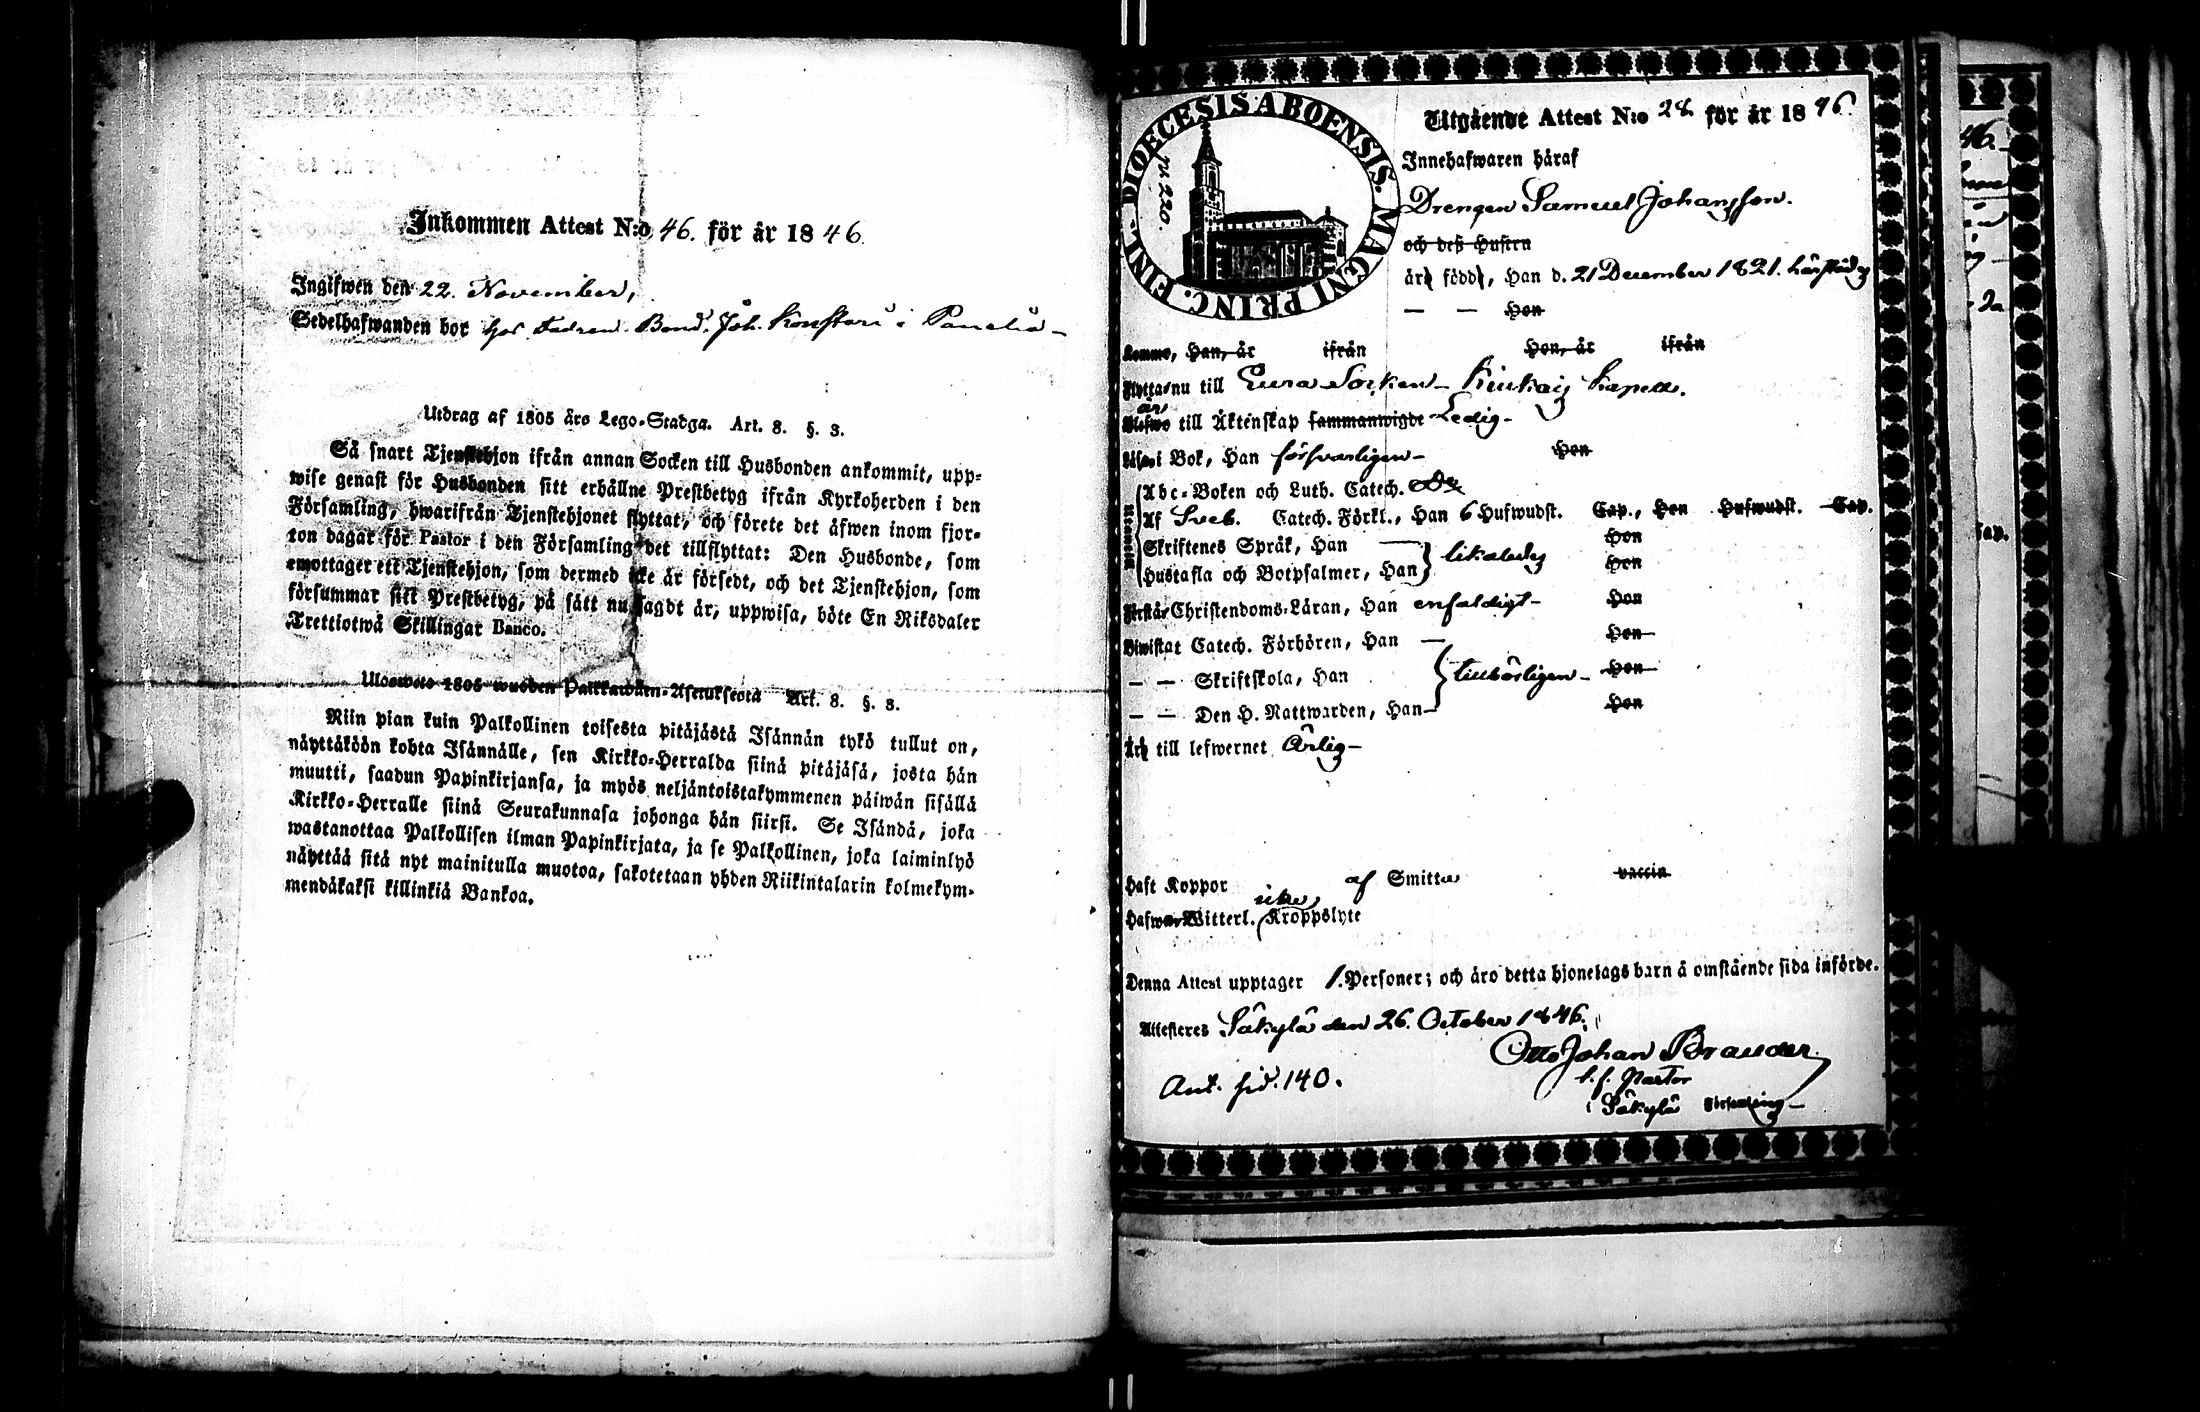 Inkommen Attest N:o 46. för år 1846.
Ingifwen den 22. November,
Sedelhafwanden bor hos Fadren Bond. Joh. Konstari i Panelia
Utdrag af 1805 års Lego-Stadga. Art. 8. §. 3.
Så snart Tjenstehjon ifrån annan Socken till Husbonden ankommit, upp-
wise genast för Husbonden sitt erhållne Prestbetyg ifrån Kyrkoherden i den
Församling, hwarifrån Tjenstehjonet flyttat, och förete det äfwen inom fjor-
ton dagar för Pastor i den Församling det tillflyttat: Den Husbonde, som
emottager ett Tjenstehjon, som dermed icke är försedt, och det Tjenstehjon, som
försummar sitt Prestbetyg, på sätt nu sagdt är, uppwisa, böte En Riksdaler
Trettiotwå Skillingar Banco.
Ulosweto 1805 wuoden Palkkawäen-Asetuksesta Art. 8. §. 3.
Niin pian kuin Palkollinen toisesta pitäjästä Isännän tykö tullut on,
näyttäköön kohta Isännälle, sen Kirkko-Herralda siinä pitäjäsä, josta hän
muutti, saadun Papinkirjansa, ja myös neljäntoistakymmenen päiwän sisällä
Kirkko-Herralle siinä Seurakunnasa johonga hän siirsi. Se Isändä, joka
wastanottaa Palkollisen ilman Papinkirjata, ja se Palkollinen, joka laiminlyö
näyttää sitä nyt mainitulla muotoa, sakotetaan yhden Riikintalarin kolmekym-
mendäkaksi killinkiä Bankoa.
DIOECESIS ABOENSIS. MAGNI PRINC. FINL.
pi 220.
Utgående Attest N:o 28. för år 1846.
Innehafwaren häraf
Drengen Samuel Johansson.
och deß Hustru
är född, Han d. 21 December 1821. härstädes
— — Hon
Komne, Han, år ifrån Hon, år ifrån
Flyttar nu till Eura Socken Kiukais Kapell.
är
Blefwo till Äktenskap sammanwigde Ledig
Läser i Bok, Han försvarligen Hon
Utantill
Abc-Boken och Luth. Catech.
Af Sveb. Catech. Förkl., Han 6 Hufwudst. Cap., Hon Hufwudst. Cap.
Skriftenes Språk, Han — Hon
Hustafla och Botpsalmer, Han likaledes Hon
Förstår Christendoms-Läran, Han enfaldigt Hon
Biwistat Catech. Förhören, Han — Hon
— — Skriftskola, Han tillbörligen Hon
— — Den H. Nattwarden, Han Hon
Är till lefwernet Ärlig
Haft Koppor af Smitta vaccin
icke
Hafwa Witterl. Kroppslyte
Denna Attest upptager 1. Personer; och äro detta hjonelags barn å omstående sida införde.
Attesteres Säkylä den 26. October 1846.
Otto Johan Brander
t. f. Pastor
i Säkylä Församling
Ant. sid. 140.
46.
Cap.